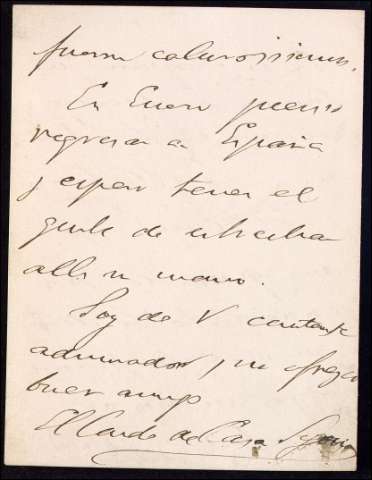 fueron calurosisimos.
En Enero pienso
regresar a España
y espero tener el
gusto de estrechar
alli su mano.
Soy de V constante
admirador y su afmo
buen amigo
El Conde de Casa Segovia